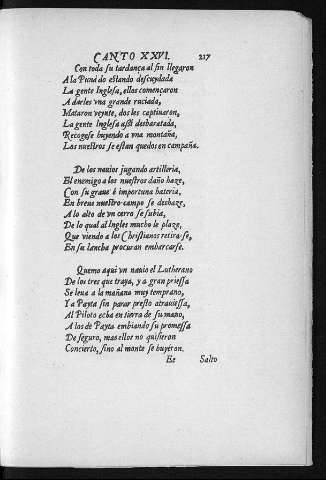 CANTO XXVI. 217
Con toda su tardança al fin llegaron
A la Punà do estando descuydada
La gente Inglesa, ellos començaron
A darles vna grande ruciada,
Mataron veynte, dos les captiuaron,
La gente Inglesa assi desbaratada,
Recogese huyendo a vna montaña,
Los nuestros se estan quedos en campaña.
De los nauios jugando artilleria,
El enemigo a los nuestros daño haze,
Con su graue è importuna bateria,
En breue nuestro campo se deshaze,
A lo alto de vn cerro se subia,
De lo qual al Ingles mucho le plaze,
Que viendo a los Christianos retirarse,
En su lancha procuran embarcarse.
Quemo aqui vn nauio el Lutherano
De los tres que traya, y a gran priessa
Se leua a la mañana muy temprano,
Y a Payta sin parar presto atrauiessa,
Al Piloto echa en tierra de su mano,
A los de Payta embiando su promessa
De seguro, mas ellos no quisieron
Concierto, sino al monte se huyeron.
Ee Salto